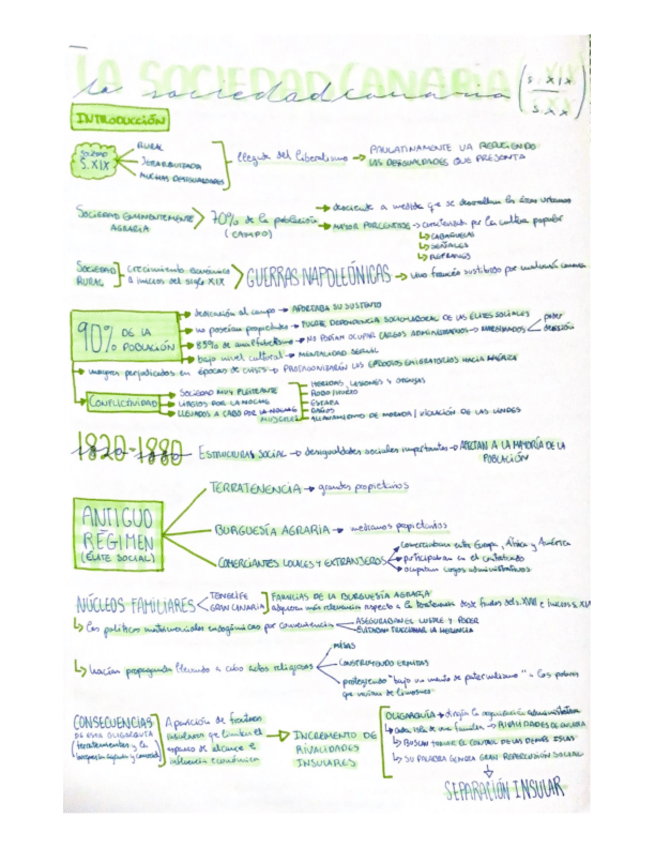 LA SOCIEDAD CANARIA (S. XIX / S. XX)
la sociedad canaria
INTRODUCCIÓN
SOCIEDAD S.XIX
RURAL
JERARQUIZADA
MUCHAS DESIGUALDADES
llegada del liberalismo → PAULATINAMENTE VA REDUCIENDO
LAS DESIGUALDADES QUE PRESENTA
SOCIEDAD EMINENTEMENTE AGRARIA > 70% de la población (CAMPO)
→ desciende a medida que se desarrollan las áreas urbanas
→ MAYOR PORCENTAJE → caracterizada por la cultura popular
↳
↳
↳ REFRANES
SOCIEDAD RURAL ] crecimiento económico a inicios del siglo XIX > GUERRAS NAPOLEÓNICAS → vino francés sustituido por malvasía canaria
90% DE LA POBLACIÓN
→ dedicación al campo → APORTABA SU SUSTENTO
→ no poseían propiedades → FUERTE DEPENDENCIA SOCIO-LABORAL DE LAS ÉLITES SOCIALES
→ 85% de analfabetismo → NO PODÍAN OCUPAR CARGOS ADMINISTRATIVOS → MARGINADOS < poder decisión
→ bajo nivel cultural → MENTALIDAD SERVIL
→ mayores perjudicados en épocas de CRISIS → PROTAGONIZARÁN LOS ÉXODOS MIGRATORIOS HACIA AMÉRICA
CONFLICTIVIDAD
→ SOCIEDAD MUY PLEITEANTE
→ POR LA NOCHE
→ LLEVADOS A CABO POR LA NOCHE
HERIDAS, LESIONES Y OFENSAS
ROBO/HURTO
ESTAFA
DAÑOS
ALLANAMIENTO DE MORADA / VIOLACIÓN DE LAS LINDES
1820-1880 ESTRUCTURA SOCIAL → desigualdades sociales importantes → AFECTAN A LA MAYORÍA DE LA
POBLACIÓN
ANTIGUO RÉGIMEN (ÉLITE SOCIAL)
TERRATENENCIA → grandes propietarios
BURGUESÍA AGRARIA → medianos propietarios
COMERCIANTES LOCALES Y EXTRANJEROS
→ comerciaban entre Europa, África y América
→ participaban en el contrabando
→ ocupaban cargos administrativos
NÚCLEOS FAMILIARES < TENERIFE GRAN CANARIA ] FAMILIAS DE LA BURGUESÍA AGRARIA
adquieren más relevancia respecto a la terratenencia desde finales del s. XVIII e inicios s. XIX
↳ Las políticas matrimoniales endogámicas por conveniencia < ASEGURABAN EL LUSTRE Y PODER
EVITABAN FRACCIONAR LA HERENCIA
↳ hacían propaganda llevando a cabo actos religiosos
MISAS
CONSTRUYENDO ERMITAS
protegiendo "bajo un manto de paternalismo" a los pobres
que vivían de limosnas
CONSECUENCIAS DE ESTA OLIGARQUÍA (terratenientes y la burguesía agraria y comercial)
Aparición de fronteras insulares que limitan el espacio de alcance e influencia económica
→ INCREMENTO DE RIVALIDADES INSULARES
OLIGARQUÍA → dirigía la organización administrativa
↳ cada isla de una familia → RIVALIDADES
↳ BUSCAN TOMAR EL CONTROL DE LAS DEMÁS ISLAS
↳ SU PALABRA GENERA GRAN REPERCUSIÓN SOCIAL
↓
SEPARACIÓN INSULAR